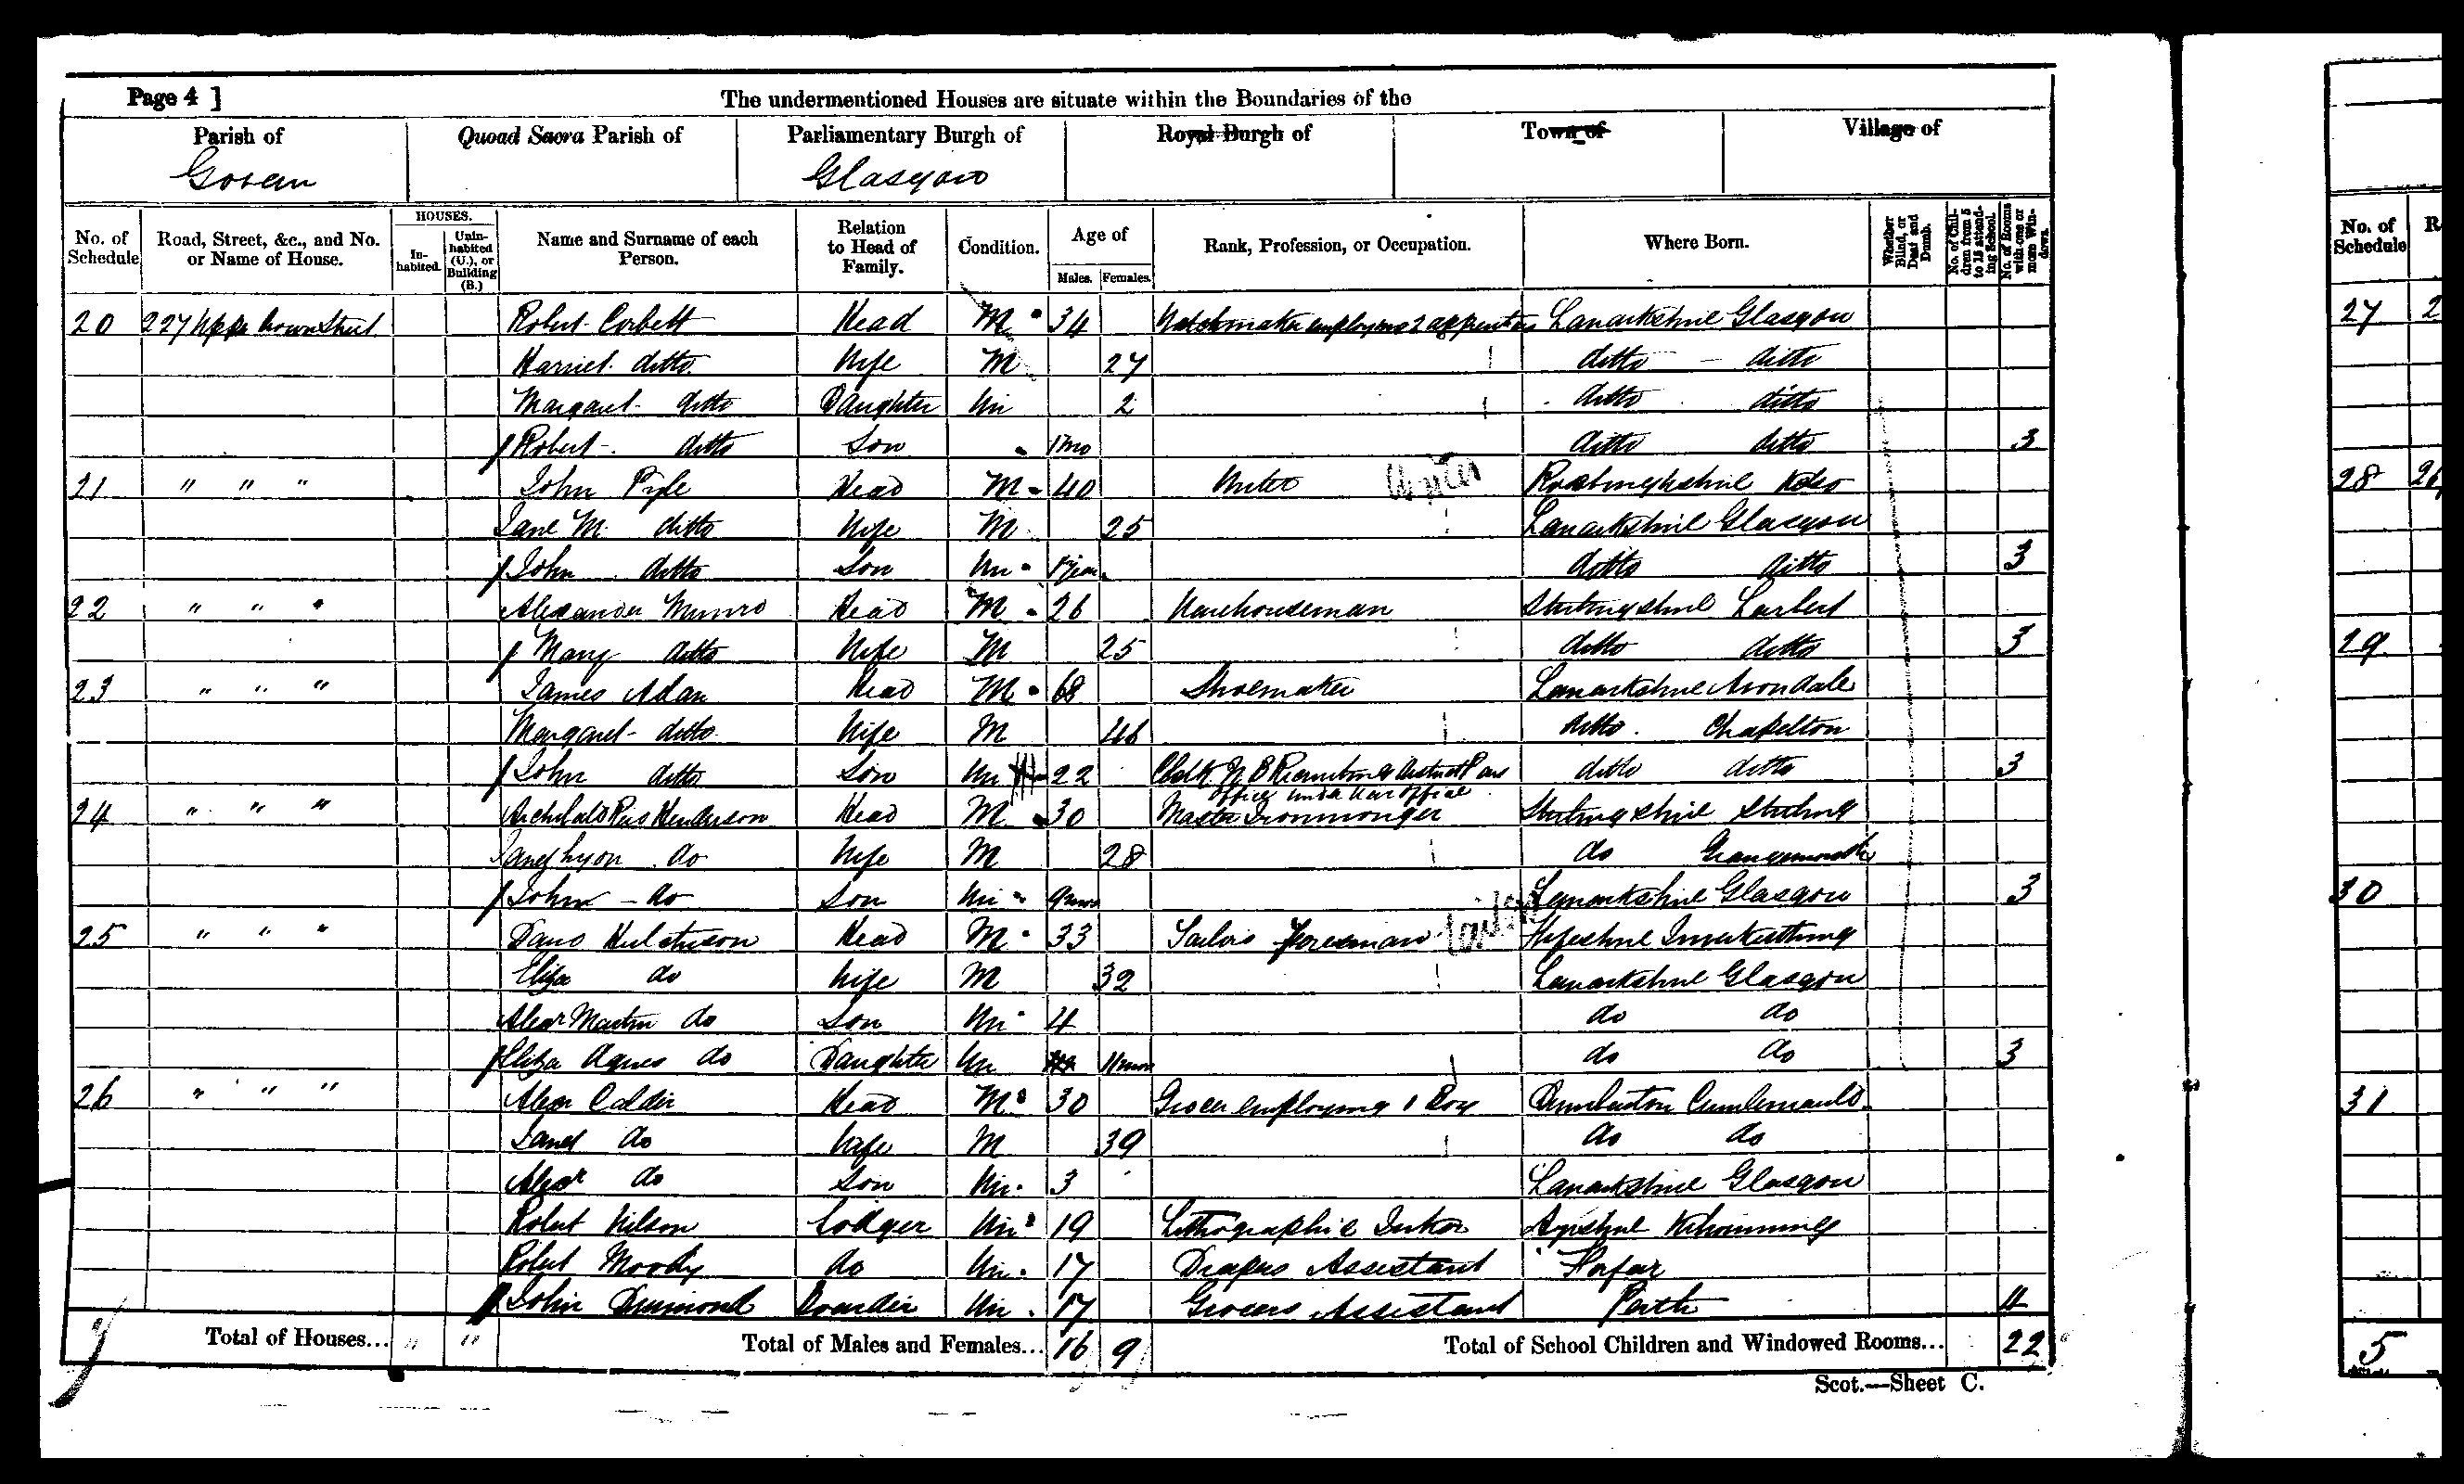 Page 4 ]
The undermentioned Houses are situate within the Boundaries of the
Parish of Quoad Sacra Parish of Parliamentary Burgh of Royal Burgh of Town of Village of
Govan Glasgow
No. of Schedule Road, Street, &c., and No. or Name of House. HOUSES. Inhabited. Uninhabited (U.), or Building (B.) Name and Surname of each Person. Relation to Head of Family. Condition. Age of Males. Females. Rank, Profession, or Occupation. Where Born. Whether Blind, or Deaf and Dumb. No. of Children from 5 to 15 attending School. No. of Rooms with one or more Windows.
20 227 Robert Corbett Head M 34 employing 2 Lanarkshire Glasgow
Harriet ditto Wife M 27 ditto ditto
Margaret ditto Daughter Un 2 ditto ditto
Robert ditto Son 1 mo ditto ditto 3
21 " " " John Pyle Head M 40 Writer Writer Roxburghshire Kelso
Jane M. ditto Wife M 25 Lanarkshire Glasgow
John ditto Son Un 1 year ditto ditto 3
22 " " " Alexander Munro Head M 26 Warehouseman Stirlingshire Larbert
Mary ditto Wife M 25 ditto ditto 3
23 " " " James Adam Head M 68 Shoemaker Lanarkshire Avondale
Margaret ditto Wife M 46 ditto Chapelton
John ditto Son Un 22 ditto ditto 3
office under War Office
24 " " " Archibald Henderson Head M 30 Master Ironmonger Stirlingshire Stirling
Lyon do Wife M 28 do Grangemouth
John do Son Un 9 mos Lanarkshire Glasgow 3
25 " " " David Hutchison Head M 33 Tailors Foreman Tailor Fifeshire Inverkeithing
Eliza do Wife M 32 Lanarkshire Glasgow
Alexr Martin do Son Un 4 do do
Eliza Agnes do Daughter Un 11 mos do do 3
26 " " " Alexr Calder Head M 30 Grocer employing 1 Boy Dumbarton Cumbernauld
Janet do Wife M 39 do do
Alexr do Son Un 3 Lanarkshire Glasgow
Robert Wilson Lodger Un 19 Lithographic Ayrshire Kilwinning
Robert Moody do Un 17 Drapers Assistant Forfar
John Drumond Boarder Un 17 Grocers Assistant Perth 4
Total of Houses... " " Total of Males and Females... 16 9 Total of School Children and Windowed Rooms... 22
Scot.—Sheet C.
No. of Schedule R
27 2
28 26
29
30
31
5